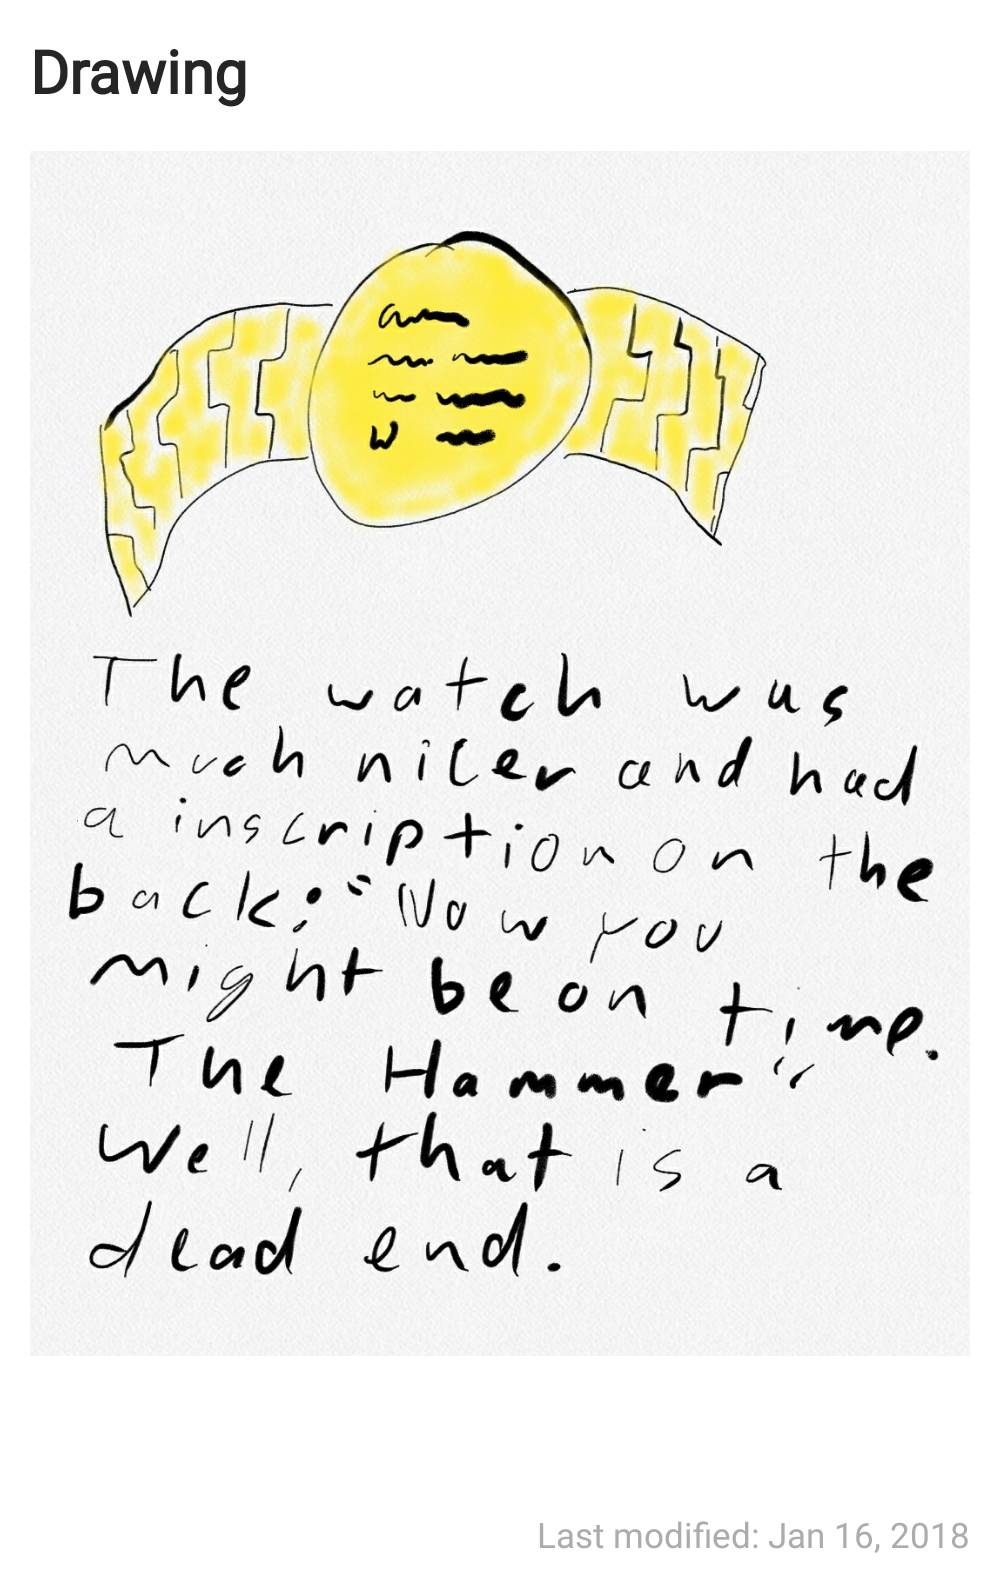 Drawing
The watch was
much nicer and had
a inscription on the
back: "Now you
might be on time.
The Hammer"
Well, that is a
dead end.
Last modified: Jan 16, 2018